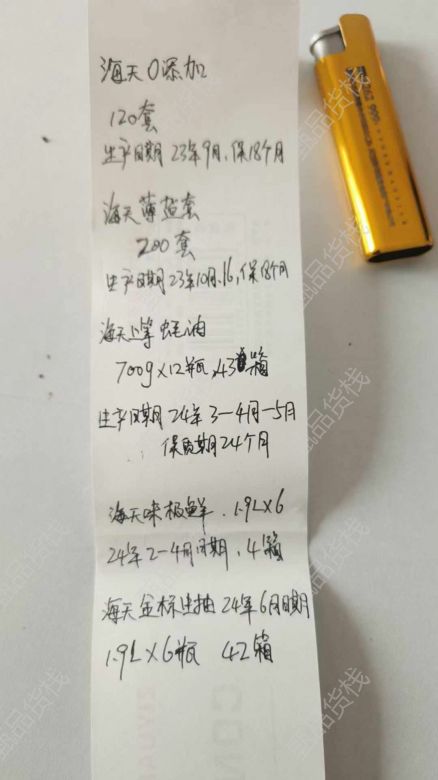 海天0添加
120套
生产日期 23年9月、保18个月
海天薄盐套
200套
生产日期23年10月.16,保18个月
海天上等蚝油
700g×12瓶,43箱
生产日期24年3-4月-5月
保质期24个月
海天味极鲜.1.9L×6
24年2-4月日期、4箱
海天金标生抽 24年6月日期
1.9L×6瓶 42箱
甄品货栈